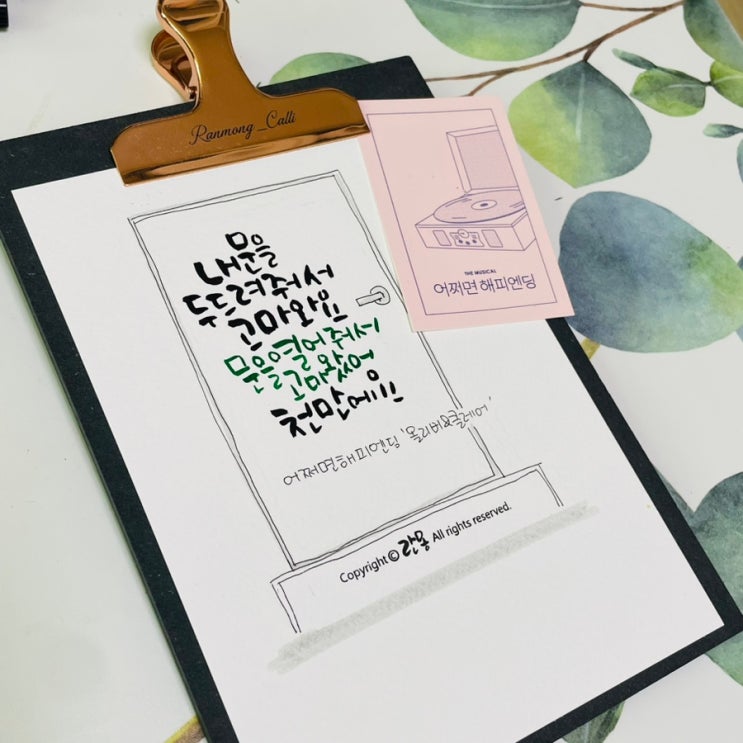 Ranmong_Calli
내 문을
두드려줘서
고마와요
문을 열어줘서
고마왔어
천만에요
어쩌면 해피엔딩 '올리버&클레어'
Copyright © 란몽 All rights reserved.
THE MUSICAL
어쩌면 해피엔딩